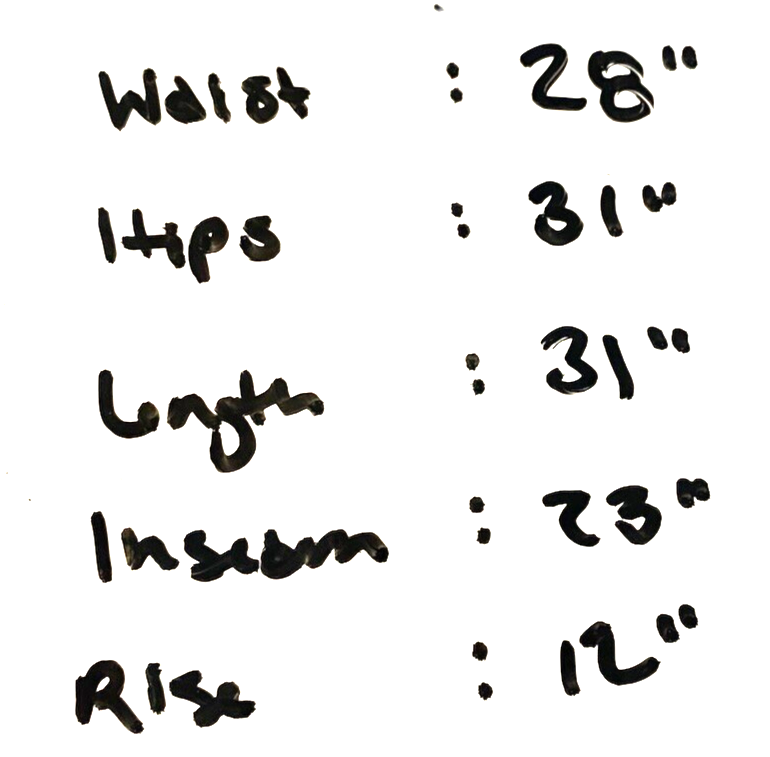 Waist : 28"
Hips : 31"
Length : 31"
Inseam : 23"
Rise : 12"